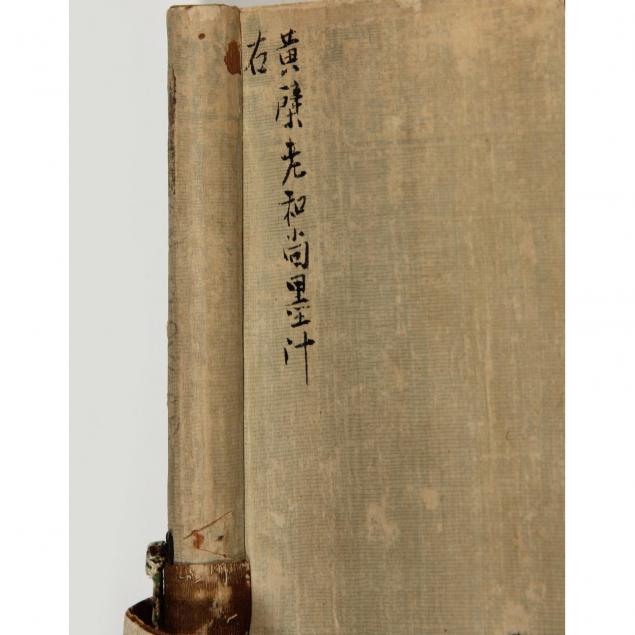 黄檗老和尚墨汁
右